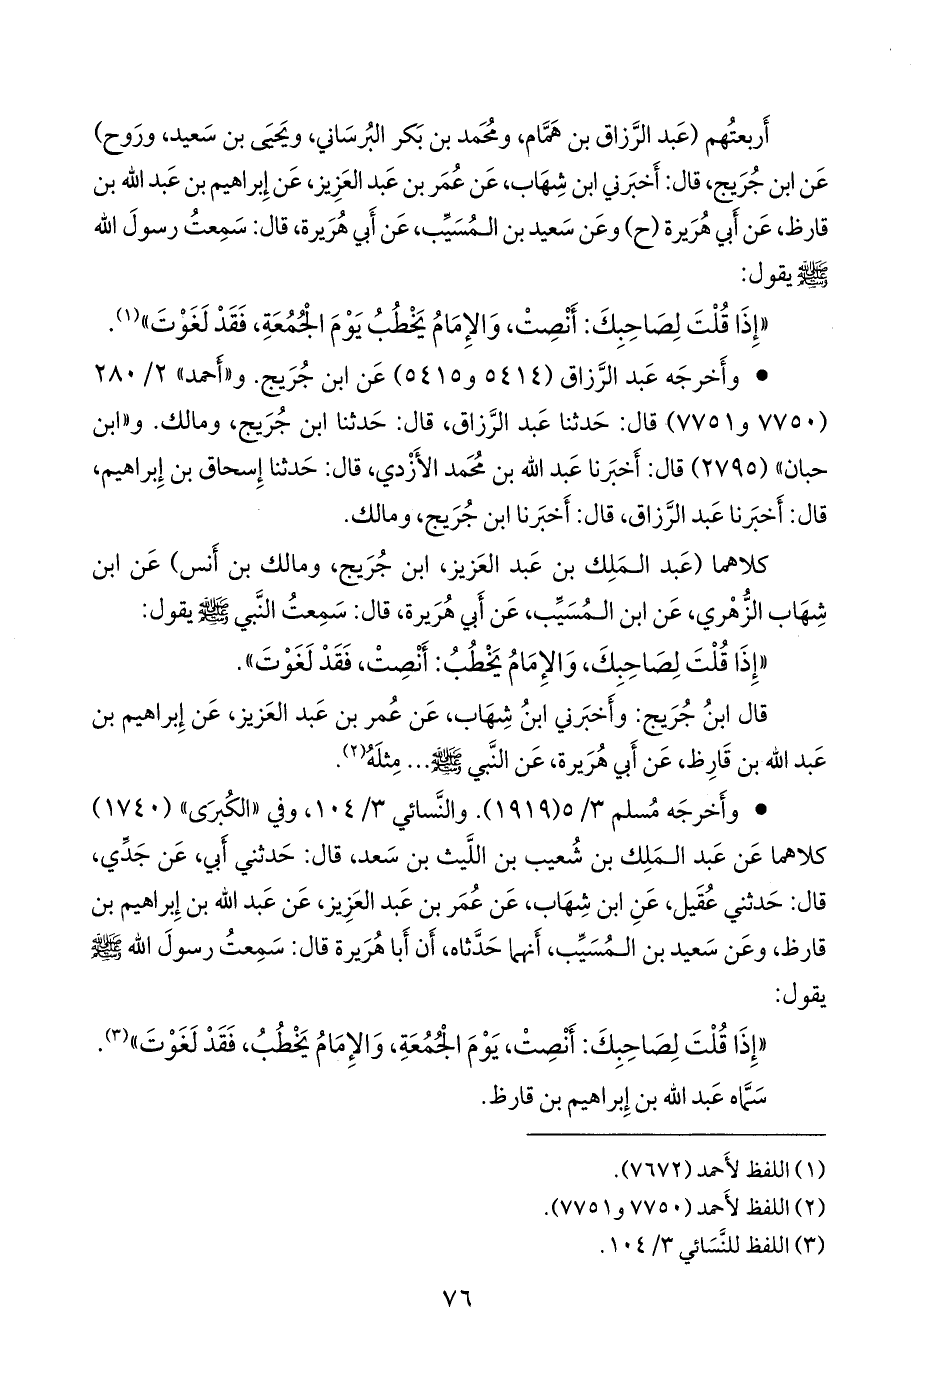 أَربعتُهم (عَبد الرَّزاق بن هَمَّام، ومُحمد بن بَكر البُرساني، ويَحيَى بن سَعيد، ورَوح)
عَن ابن جُرَيج، قال: أَخبَرني ابن شِهَاب، عَن عُمَر بن عَبد العَزيز، عَن إِبراهيم بن عَبد الله بن
قارظ، عَن أَبي هُرَيرة (ح) وعَن سَعيد بن الـمُسَيِّب، عَن أَبي هُرَيرة، قال: سَمِعتُ رسولَ الله
ﷺ يقول:
«إِذَا قُلْتَ لِصَاحِبِكَ: أَنْصِتْ، وَالإِمَامُ يَخْطُبُ يَوْمَ الْجُمُعَةِ، فَقَدْ لَغَوْتَ»(١).
• وأَخرجَه عَبد الرَّزاق (٥٤١٤ و٥٤١٥) عَن ابن جُرَيج. و«أَحمد» ٢/ ٢٨٠
(٧٧٥٠ و٧٧٥١) قال: حَدثنا عَبد الرَّزاق، قال: حَدثنا ابن جُرَيج، ومالك. و«ابن
حبان» (٢٧٩٥) قال: أَخبَرنا عَبد الله بن مُحمد الأَزْدي، قال: حَدثنا إِسحاق بن إِبراهيم،
قال: أَخبَرنا عَبد الرَّزاق، قال: أَخبَرنا ابن جُرَيج، ومالك.
كلاهما (عَبد الـمَلِك بن عَبد العَزيز، ابن جُرَيج، ومالك بن أَنس) عَن ابن
شِهَاب الزُّهْري، عَن ابن الـمُسَيِّب، عَن أَبي هُرَيرة، قال: سَمِعتُ النَّبي ﷺ يقول:
«إِذَا قُلْتَ لِصَاحِبِكَ، وَالإِمَامُ يَخْطُبُ: أَنْصِتْ، فَقَدْ لَغَوْتَ».
قال ابنُ جُرَيج: وأَخبَرني ابنُ شِهَاب، عَن عُمر بن عَبد العَزيز، عَن إِبراهيم بن
عَبد الله بن قَارِظ، عَن أَبي هُرَيرة، عَن النَّبي ﷺ... مِثلَهُ(٢).
• وأَخرجَه مُسلم ٣/ ٥(١٩١٩). والنَّسائي ٣/ ١٠٤، وفي «الكُبرَى» (١٧٤٠)
كلاهما عَن عَبد الـمَلِك بن شُعيب بن اللَّيث بن سَعد، قال: حَدثني أَبي، عَن جَدِّي،
قال: حَدثني عُقَيل، عَنِ ابن شِهَاب، عَن عُمَر بن عَبد العَزِيز، عَن عَبد الله بن إِبراهيم بن
قارظ، وعَن سَعيد بن الـمُسَيِّب، أَنهما حَدَّثاه، أَن أَبا هُرَيرة قال: سَمِعتُ رسولَ الله ﷺ
يقول:
«إِذَا قُلْتَ لِصَاحِبِكَ: أَنْصِتْ، يَوْمَ الْجُمُعَةِ، وَالإِمَامُ يَخْطُبُ، فَقَدْ لَغَوْتَ»(٣).
سَمَّاه عَبد الله بن إِبراهيم بن قارظ.
(١) اللفظ لأَحمد (٧٦٧٢).
(٢) اللفظ لأَحمد (٧٧٥٠ و٧٧٥١).
(٣) اللفظ للنَّسَائي ٣/ ١٠٤.
٧٦